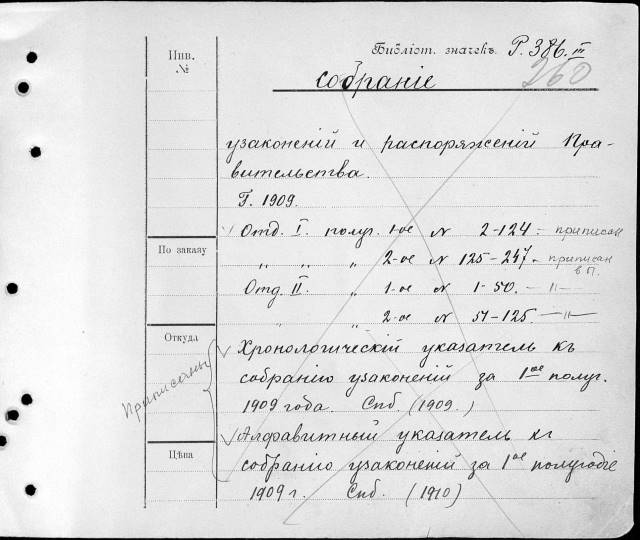 Инв. №
Библіот. значекъ Р. 386. III
360
собраніе
узаконеній и распоряженій Пра-
вительства.
Г. 1909.
Отд. I. полуг. 1-ое N 2-124 - приписан
По заказу
" " " 2-ое N 125-247. приписан в П.
Отд. II. " 1-ое N 1-50. - " -
" " 2-ое N 51-125. - " -
Откуда
Приписаны
Хронологическій указатель къ
собранію узаконеній за 1ое полуг.
1909 года. Спб. (1909.)
Алфавитный указатель къ
Цѣна
собранію узаконеній за 1ое полугодіе
1909 г. Спб. (1910)